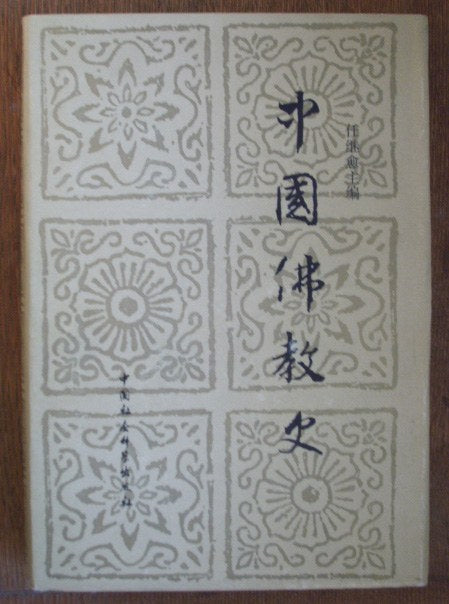 任继愈主编
中國佛教史
中国社会科学出版社